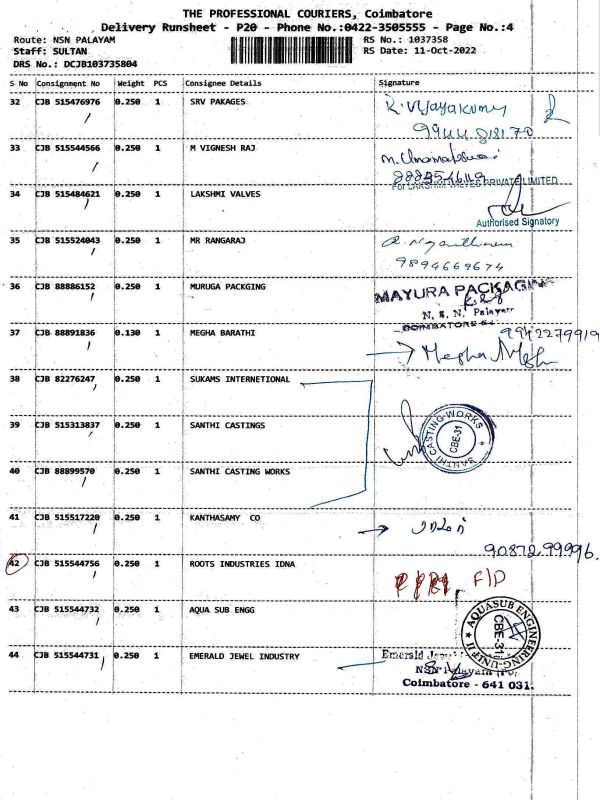 THE PROFESSIONAL COURIERS, Coimbatore
Delivery Runsheet - P20 - Phone No.:0422-3505555 - Page No.:4
Route: NSN PALAYAM RS No.: 1037358
Staff: SULTAN RS Date: 11-Oct-2022
DRS No.: DCJB103735804
S No Consignment No Weight PCS Consignee Details Signature
32 CJB 515476976 0.250 1 SRV PAKAGES K. Vijayakumar
33 CJB 515544566 0.250 1 M VIGNESH RAJ
For LAKSHMI VALVES PRIVATE LIMITED
34 CJB 515484621 0.250 1 LAKSHMI VALVES
Authorised Signatory
35 CJB 515524043 0.250 1 MR RANGARAJ
9894669674
36 CJB 88886152 0.250 1 MURUGA PACKGING MAYURA PACKAGING
N. S. N. Palayam
COIMBATORE
37 CJB 88891836 0.130 1 MEGHA BARATHI 9942279919
Megha
38 CJB 82276247 0.250 1 SUKAMS INTERNETIONAL
39 CJB 515313837 0.250 1 SANTHI CASTINGS SANTHI CASTING WORKS
CBE-31
40 CJB 88899570 0.250 1 SANTHI CASTING WORKS
41 CJB 515517220 0.250 1 KANTHASAMY CO
90872 99996.
42 CJB 515544756 0.250 1 ROOTS INDUSTRIES IDNA
F/D
43 CJB 515544732 0.250 1 AQUA SUB ENGG AQUASUB ENGINEERING-UNIT II
CBE-31
44 CJB 515544731 0.250 1 EMERALD JEWEL INDUSTRY Emerald
NSN Palayam
Coimbatore - 641 031.